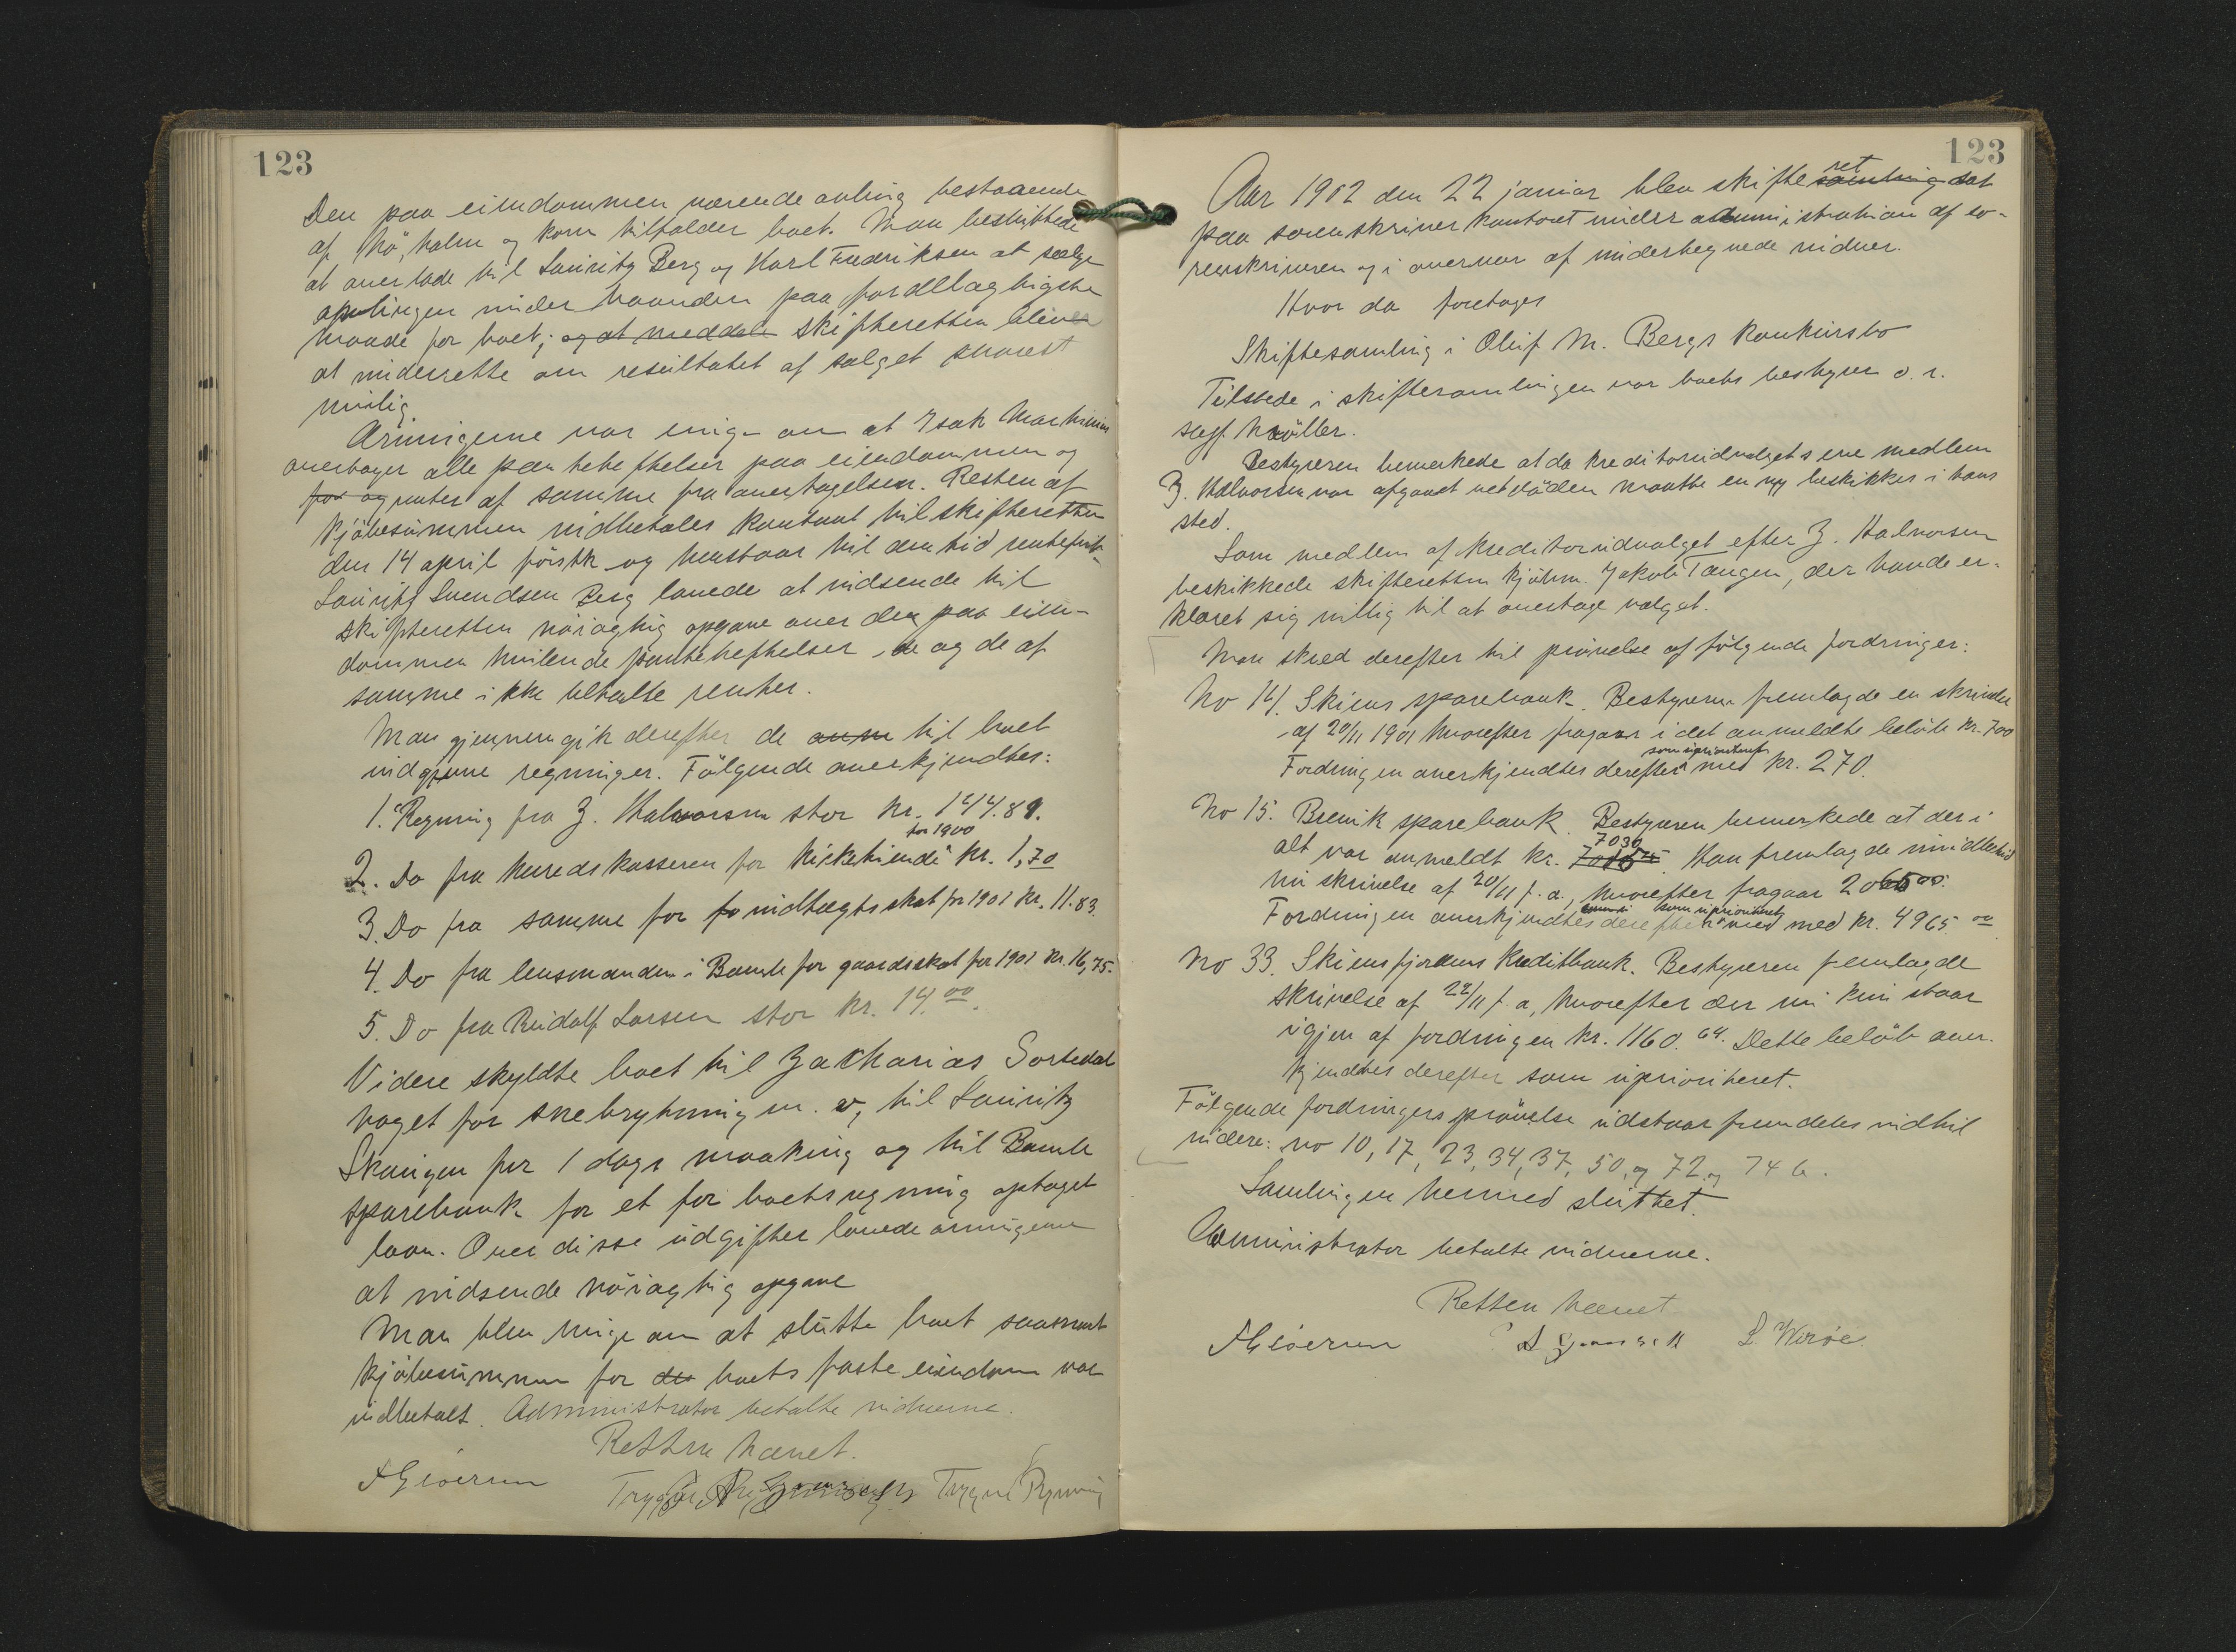 123
Den paa eiendommen værende avling bestaaende
af hö, halm og korn tilfalder boet. Man besluttede
at overlade til Lauritz Berg og Karl Fredriksen at sælge
avlingen under haanden paa fordelagtigste
maade for boet; og at meddele skifteretten bliver
at underrette om resultatet af salget snarest
mulig.
Arvingerne var enige om at Isak Mathisen
overtager alle panteheftelser paa eiendommen og
for og renter af samme fra overtagelsen. Resten af
kjöbesummen indbetales kontant til skifteretten
den 14 april förstk. og henstaar til den tid rentefrit.
Lauritz Svendsen Berg lovede at indsende til
skifteretten nöiagtig opgave over de paa eien-
dommen hvilende pantehæftelser, de og de af
samme ikke betalte renter.
Man gjennemgik derefter de anm til boet
indgivne regninger. Fölgende anerkjendtes:
1. Regning fra Z. Halvorsen stor kr. 144.89.
for 1900
2. Do fra herredskasseren for kirketiende kr. 1,70
3. Do fra samme for fo indtægtsskat for 1901 kr. 11.83.
4. Do fra lensmanden i Bamle for gaardsskat for 1901 kr. 16,75.
5. Do fra Rudolf Larsen stor kr. 14.00.
Videre skyldte boet til Zakharias Sortedal
noget for snebrytning m. v, til Lauritz
Skougen for 1 dags maaking og til Bamle
sparebank for et for boets regning optaget
laan. Over disse udgifter lovede arvingerne
at indsende nöiagtig opgave
Man blev enige om at slutte boet saasnart
kjöbesummen for de boets faste eiendom var
indbetalt. Administrator betalte vidnerne.
Retten hævet.
Trygve Ryning
123
Aar 1902 den 22 januar blev skiftesamling sat
ret
paa sorenskriverkontoret under administration af so-
renskriveren og i overvær af undertegnede vidner.
Hvor da foretages
Skiftesamling i Oluf M. Bergs konkursbo
Tilstede i skiftesamlingen var boets bestyrer o. r.
sagf. Möller.
Bestyreren bemerkede at da kreditorudvalgets ene medlem
Z. Halvorsen var afgaaet ved döden maatte en ny beskikkes i hans
sted.
Som medlem af kreditorudvalget efter Z. Halvorsen
beskikkede skifteretten kjöbm. Jakob Tangen, der havde er-
klæret sig villig til at overtage valget.
Man skred derefter til prövelse af fölgende fordringer:
No 14. Skiens sparebank. Bestyreren fremlagde en skrivelse
af 20/11 1901 hvorefter fragaar i det anmeldte belöb kr. 700
som uprioriteret
Fordringen anerkjendtes derefter med kr. 270.
No 15. Brevik sparebank. Bestyreren bemerkede at der i
7030
alt var anmeldt kr. Han fremlagde imidlertid
nu skrivelse af 20/11 f. a., hvorefter fragaar 2065 00.
som uprioriteret
Fordringen anerkjendtes derefter med med kr. 4965 00
No 33. Skiensfjordens kreditbank. Bestyreren fremlagde
skrivelse af 22/11 f. a, hvorefter der nu kun staar
igjen af fordringen kr. 1160.64. Dette belöb aner-
kjendtes derefter som uprioriteret.
Fölgende fordringers prövelse udstaar fremdeles indtil
videre: no 10, 17, 23, 34, 37, 50, og 72, og 74 b.
Samlingen hermed sluttet.
Administrator betalte vidnerne.
Retten hævet
L. Weröe